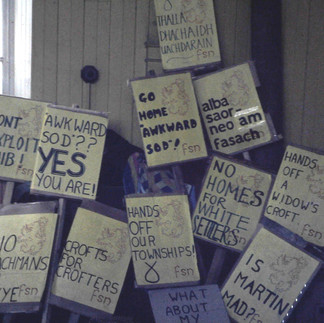 THALLA
DHACHAIDH
UACHDARAIN
fsn
GO
HOME
AWKWARD
SOD'!
fsn
alba
saor
neo am
fasach
fsn
AWKWARD
SOD'??
YES
YOU ARE!
fsn
fsn
HANDS
OFF
A
WIDOW'S
CROFT
fsn
NO
HOMES
FOR
WHITE
SETTLERS
fsn
HANDS
OFF
OUR
TOWNSHIPS!
fsn
CROFTS
FOR
CROFTERS
fsn
fsn
IS
MARTIN
MAD?
fsn
WHAT
ABOUT
MY